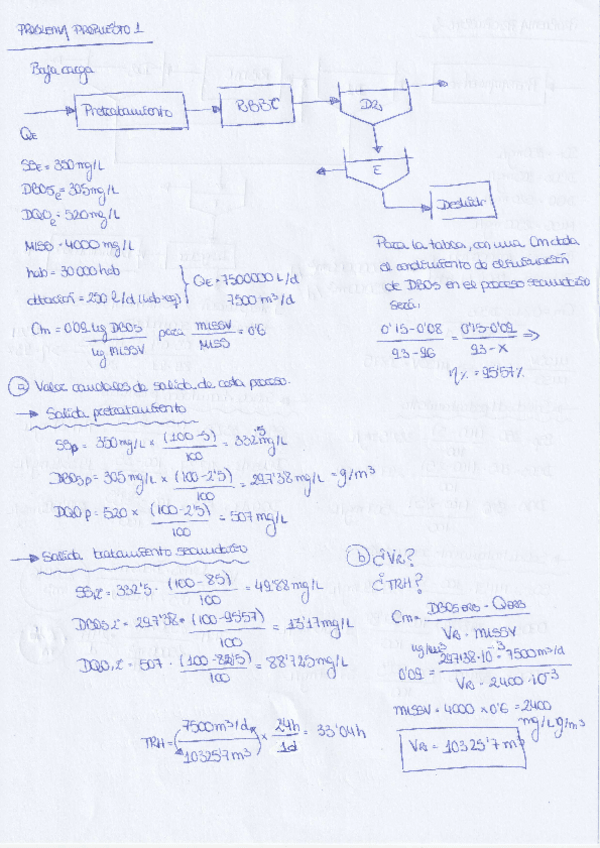 PROBLEMA PROPUESTO 1
Baja carga
Pretratamiento
RBBC
D2
E
Deshidr
QE
SSE = 350 mg/L
DBO5E = 305 mg/L
DQOE = 520 mg/L
MLSS = 4000 mg/L
hab = 30000 hab
dotación = 250 L/d (hab·eq)
QE = 7500000 L/d
7500 m³/d
Cm = 0'09 kg DBO5 / kg MLSSV para MLSSV / MLSS = 0'6
Para la tabla, con una Cm dada
el rendimiento de eliminación
de DBO5 en el proceso secundario
será:
0'15-0'08 / 93-96 = 0'15-0'09 / 93-x ⇒
η% = 95'57%
a) Valor caudales de salida de cada proceso.
→ Salida pretratamiento
SSp = 350 mg/L × (100-5) / 100 = 332'5 mg/L
DBO5p = 305 mg/L × (100-2'5) / 100 = 297'38 mg/L = g/m³
DQOp = 520 × (100-2'5) / 100 = 507 mg/L
→ Salida tratamiento secundario
SS,2 = 332'5 · (100-85) / 100 = 49'88 mg/L
DBO5,2 = 297'38 · (100-95'57) / 100 = 13'17 mg/L
DQO,2 = 507 · (100-82'5) / 100 = 88'725 mg/L
b) ¿VR?
¿TRH?
Cm = DBO5 · Q / VR · MLSSV
kg/m³
0'09 = 297'38·10⁻³ · 7500 m³/d / VR · 2400·10⁻³
MLSSV = 4000 × 0'6 = 2400
mg/L g/m³
VR = 10325'7 m³
TRH = (7500 m³/d / 10325'7 m³) × 24h / 1d = 33'04h